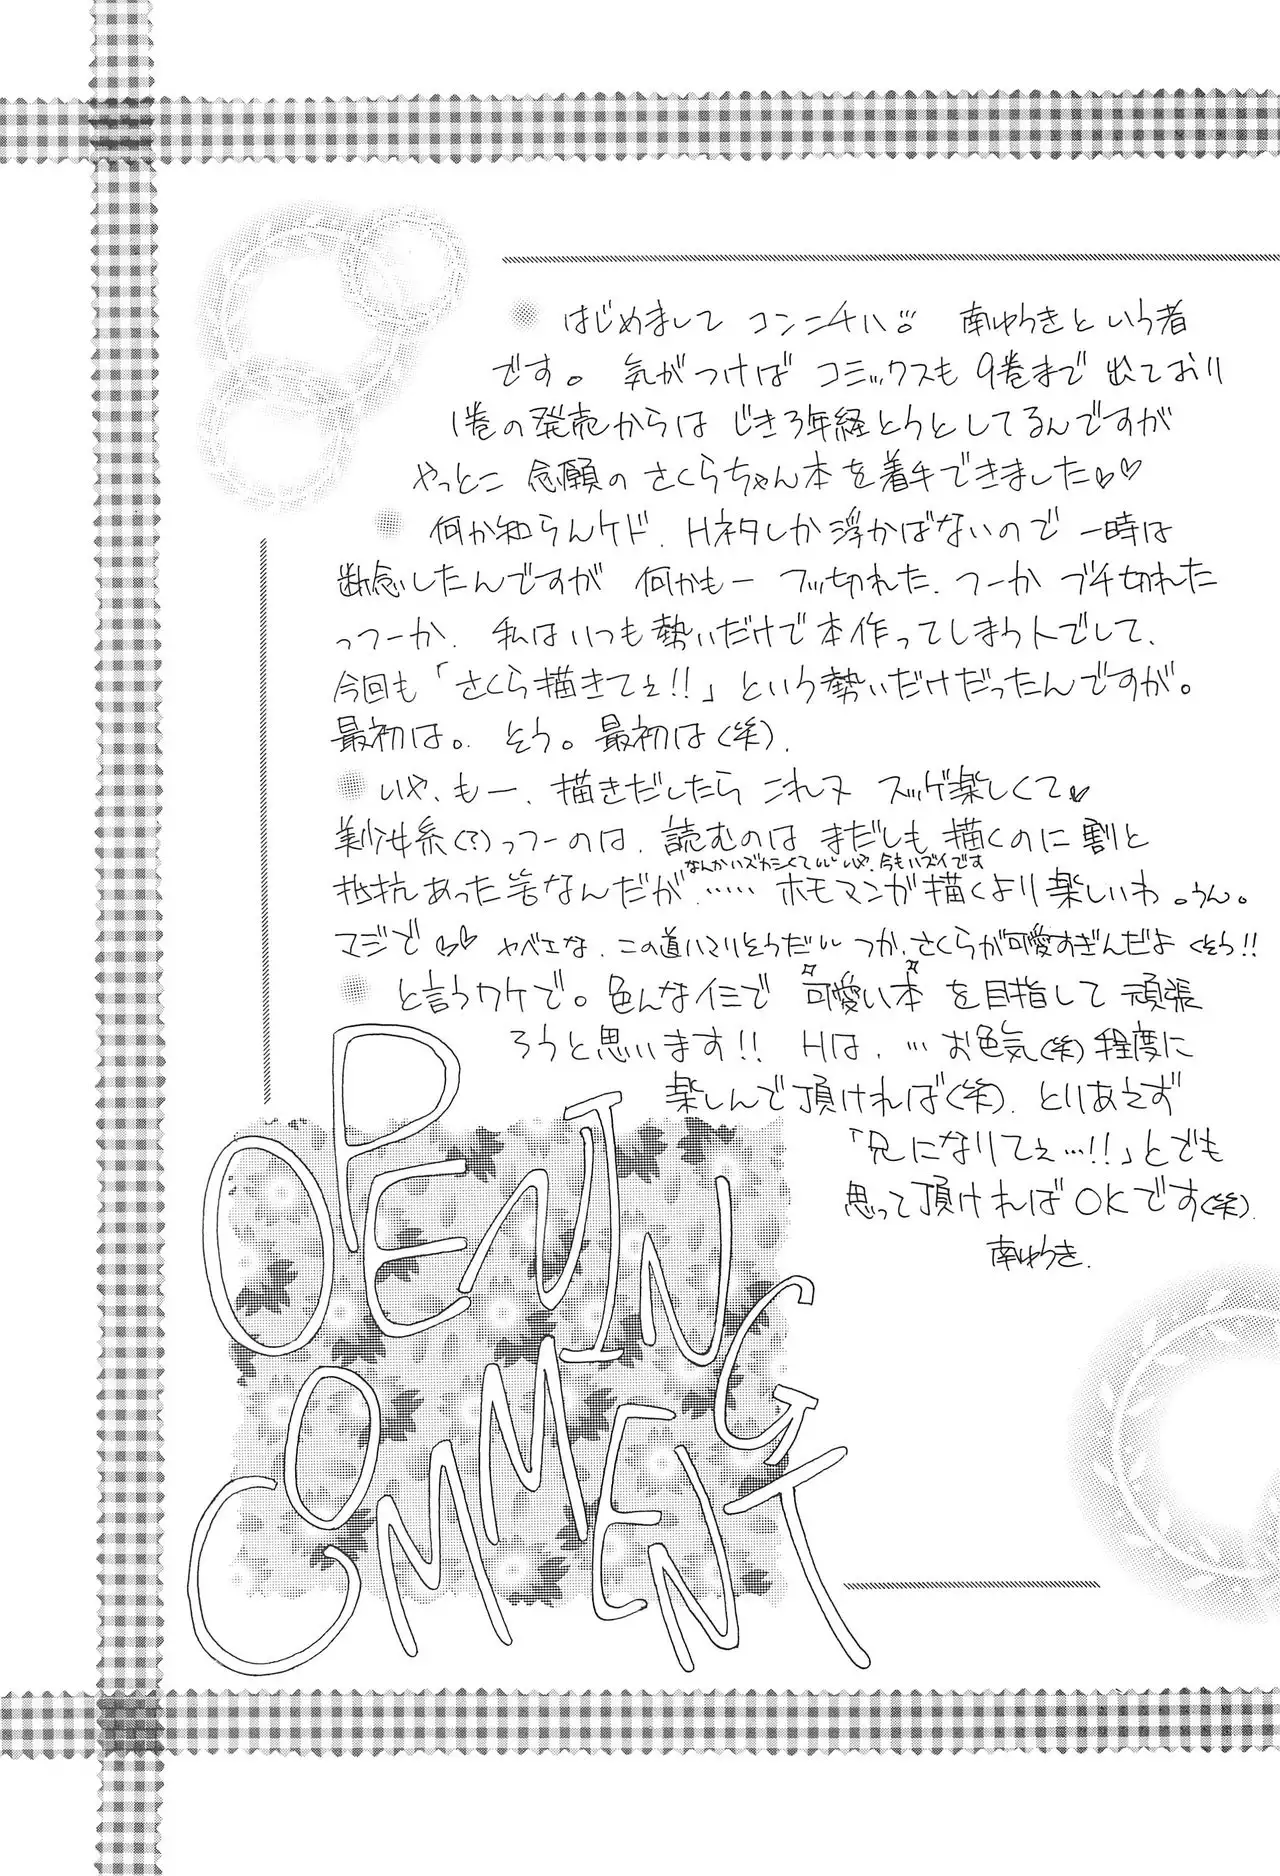 はじめまして コンニチハ 南ゆうきという者
です。 気がつけば コミックスも 9巻まで 出ており
1巻の発売からは じき3年経とうとしてるんですが
やっとこ 念願の さくらちゃん本を着手できました♡♡
何か知らんケド、Hネタしか浮かばないので 一時は
断念したんですが 何かもー フッ切れた、つーか ブチ切れた
っつーか、 私はいつも勢いだけで本作ってしまう人でして、
今回も「さくら描きてぇ!!」という勢いだけだったんですが。
最初は。 そう。最初は(笑)。
いや、もー、描きだしたら これまた スッゲ楽しくて♡
美少女系(?)っつーのは、読むのは まだしも 描くのに 割と
なんかハズカシくて いや、今もハズイです
抵抗あった筈なんだが…… ホモマンガ描くより楽しいわ。うん。
マジで♡♡ ヤベェな、この道ハマりそうだ つか、さくらが可愛すぎんだよ くそう!!
と言うワケで。色んなイミで 可愛い本 を目指して 頑張
ろうと思います!! Hは、…お色気(笑)程度に
楽しんで頂ければ(笑)。とりあえず
「兄になりてぇ…!!」とでも
思って頂ければOKです(笑)。
南ゆうき.
OPENING
COMMENT